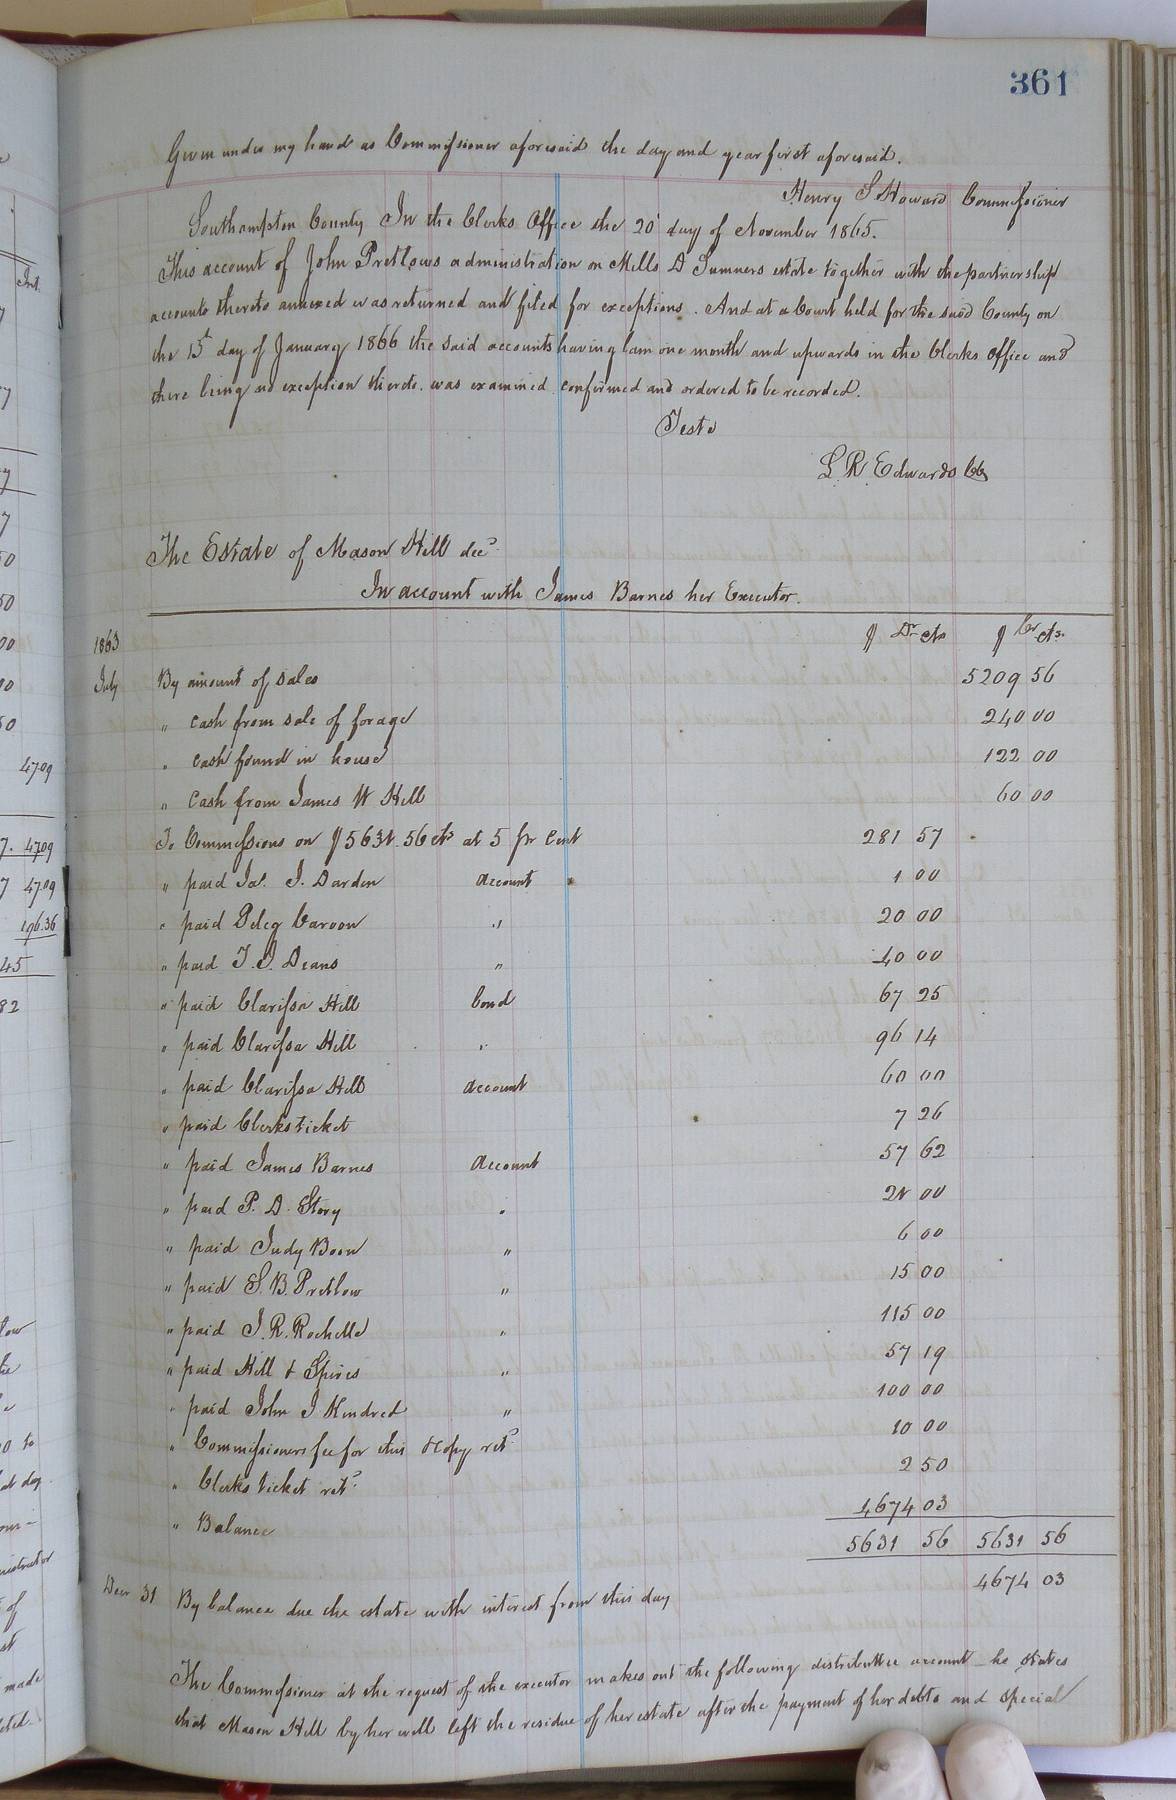 361
Given under my hand as Commissioner aforesaid the day and year first aforesaid.
Henry S Howard Commissioner
Southampton County In the Clerks Office the 20 day of November 1865.
This account of John Pretlows administration on Mills D Sumners estate together with the partnership
accounts thereto annexed was returned and filed for exceptions. And at a Court held for the said County on
the 15th day of January 1866 the said accounts having lain one month and upwards in the Clerks office and
there being no exception thereto was examined confirmed and ordered to be recorded.
Teste
L. R. Edwards CC
The Estate of Mason Hill decd
In account with James Barnes her Executor.
1863 $ Dr cts $ Cr cts.
July By amount of sales 5209 56
" cash from sale of forage 240 00
" cash found in house 122 00
" cash from James W Hill 60 00
To Commissions on $5631.56 cts at 5 pr Cent 281 57
" paid Jas. J. Darden account 1 00
" paid Peleg Caroon " 20 00
" paid T. J. Deans " 40 00
" paid Clarissa Hill bond 67 25
" paid Clarissa Hill " 96 14
" paid Clarissa Hill account 60 00
" paid Clerks ticket 7 26
" paid James Barnes account 57 62
" paid P. D. Story " 21 00
" paid Judy Boon " 6 00
" paid S. B. Pretlow " 15 00
" paid J. R. Rochelle " 115 00
" paid Hill & Spires " 57 19
" paid John J Kindred " 100 00
" Commissioners fee for this & copy retd 10 00
" Clerks ticket retd 2 50
" Balance 4674 03
5631 56 5631 56
Decr 31 By balance due the estate with interest from this day 4674 03
The Commissioner at the request of the executor makes out the following distributee account - he states
that Mason Hill by her will left the residue of her estate after the payment of her debts and special